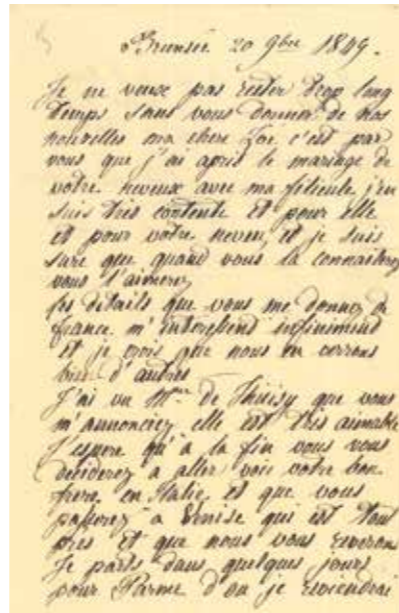 Brunsée 20 9bre 1849.
Je ne veux pas rester trop long
temps sans vous donner de nos
nouvelles ma chere Zoé c'est par
vous que j'ai apris le mariage de
votre neveux avec ma filieule j'en
suis tres contente et pour elle
et pour votre neveu, et je suis
sure que quand vous la connaitrez
vous l'aimerez
les details que vous me donnez de
france m'interessent infiniment
et je crois que nous en verrons
bien d'autres
J'ai vu Mme de que vous
m'annonciez elle est tres aimable
J'espere qu'a la fin vous vous
deciderez a aller voir votre bon
frere en Italie et que vous
passerez a Venise qui est tout
pres et que nous vous reverons
Je parts dans quelques jours
pour Parme d'ou je reviendrai